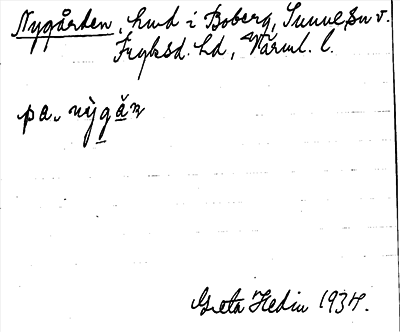 Nygården, hmd i Boberg, Sunne sn v.
Fryksd. hd, Värml. l.
pa. nỳgǎn
Greta Hedin 1934.